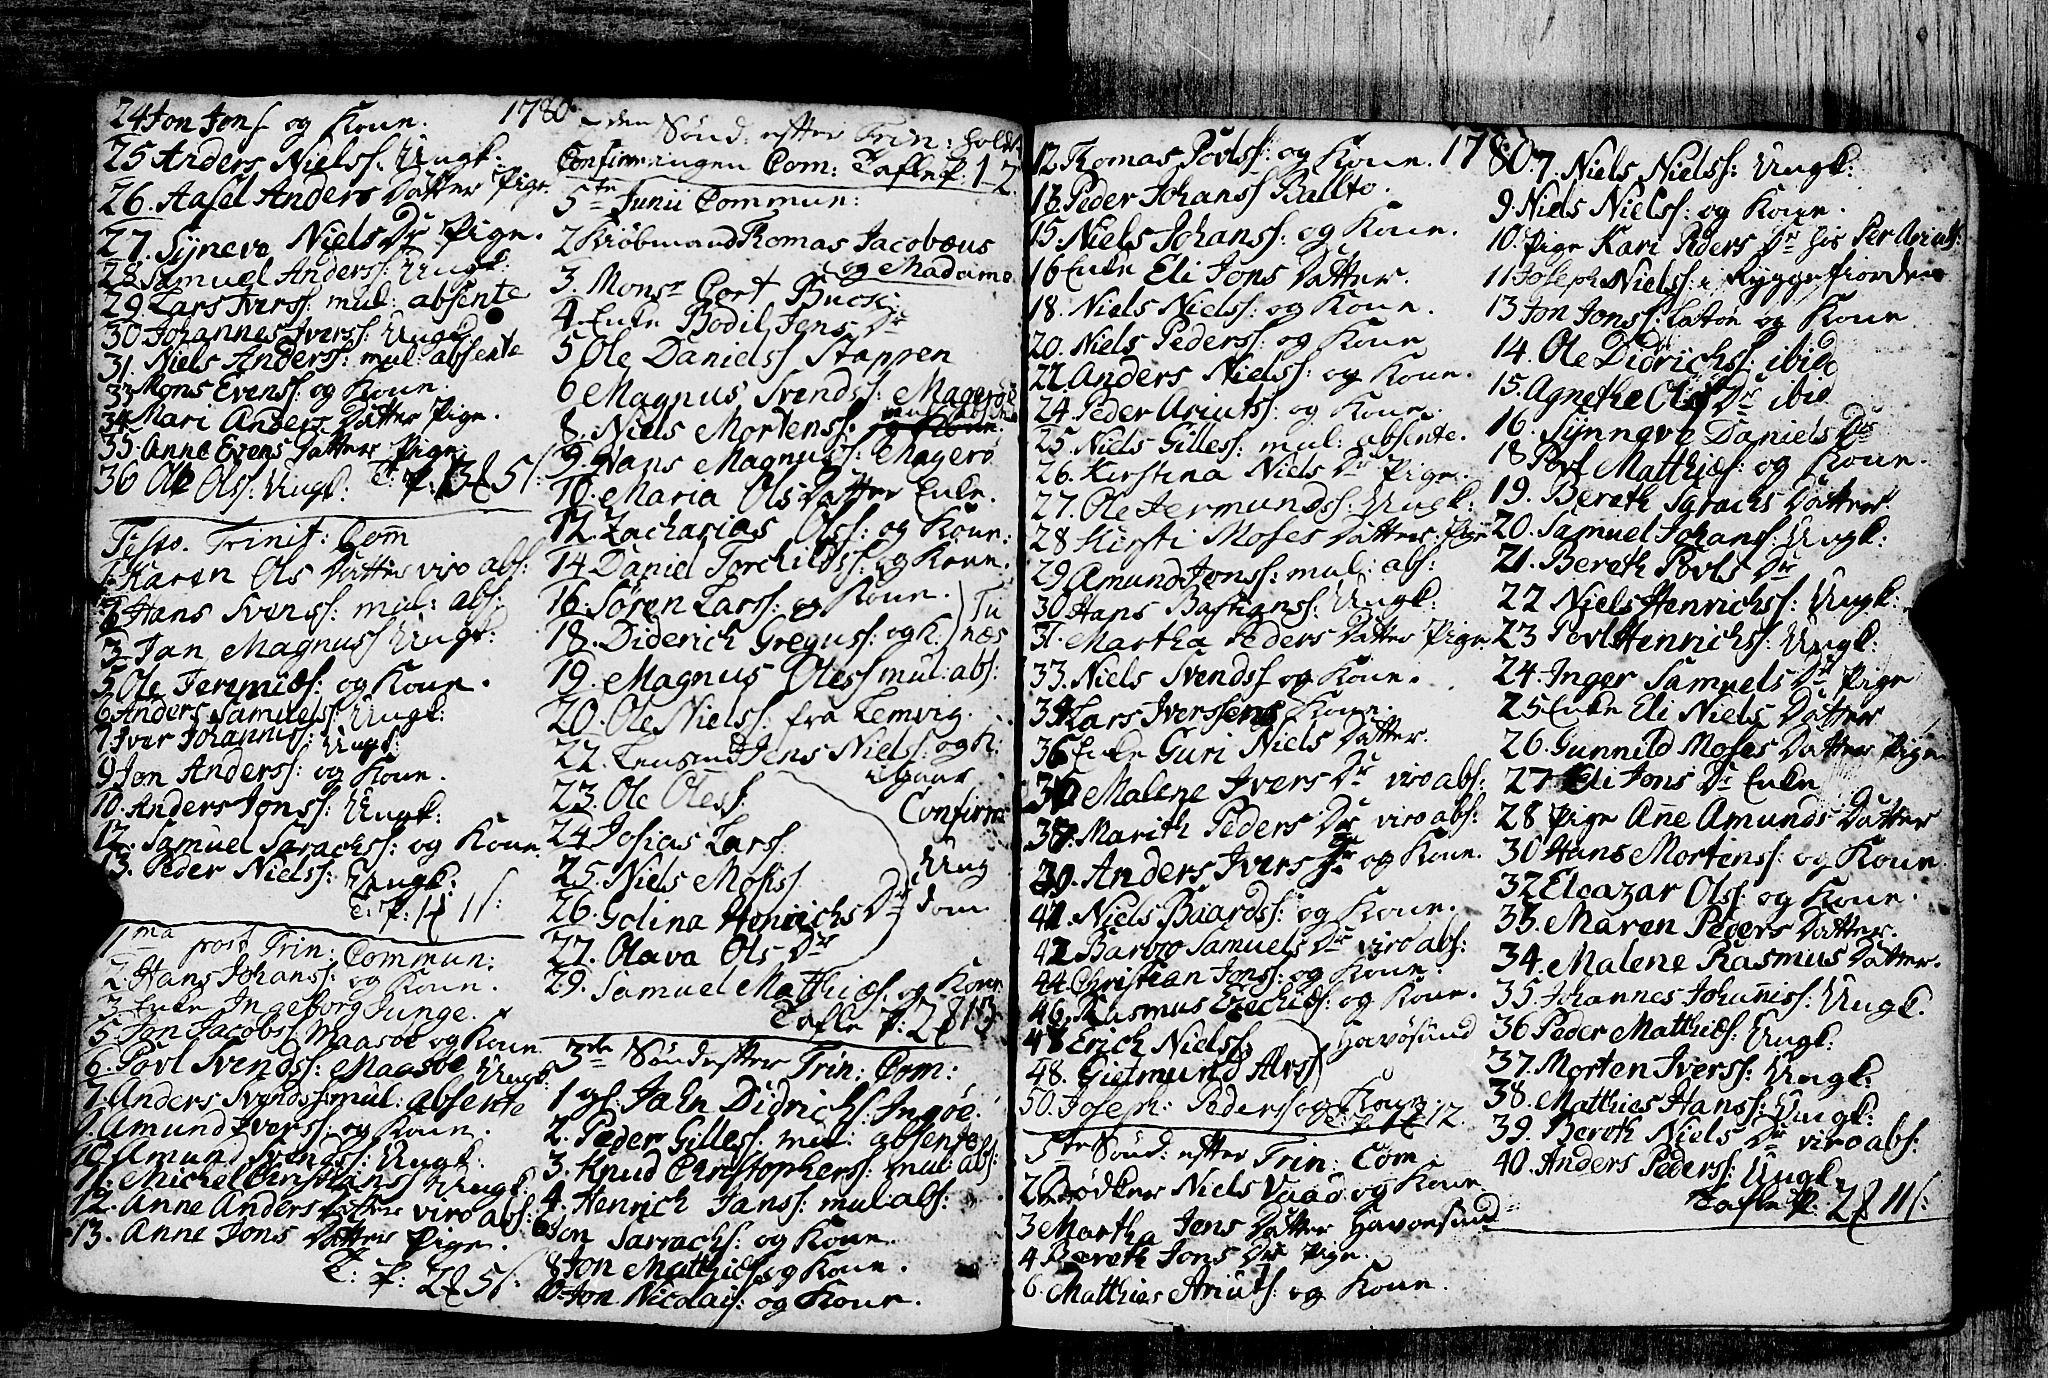 1780
24 Jon Jons: og Kone.
25 Anders Nielss: Ungk:
26. Aasel Anders Datter Pige.
27. Syneva Niels Dr Pige.
28 Samuel Anderss: Ungk:
29. Lars Iverss: mul: absente
30 Johannes Iverss: Ungk:
31. Niels Anderss: mul: absente
33 Mons Evenss: og Kone.
34 Mari Anders Datter Pige.
35 Anne Evens Datter Pige
36 Ole Olss: Ungk:
Festo. Trinit: Com
1. Karen Ols Datter viro abs:
2 Hans Svenss: mul: abs:
3 Jan Magnuss Ungk:
5 Ole Jeremiæs: og Kone.
6 Anders Samuelss: Ungk:
7 Iver Johanniss: Ungk:
9 Jon Anderss: og Kone.
10. Anders Jonss: Ungk:
12. Samuel Sarachss: og Kone.
13. Peder Nielss: Ungk:
1ma post Trin: Commun:
2 Hans Johanss: og Kone.
3 Enke Ingeborg Junge.
5 Jon Jacobs: Maasøe og Kone
6. Povl Svendss: Maasøe Ungk:
7. Anders Svendss: mul: absente
9. Amund Iverss: og Kone.
10 Amund Svendss: Ungk:
11. Michel Christianss Ungk:
12. Anne Anders Datter viro abs:
13. Anne Jons Datter Pige.
T: P: 2 5 s:
den Sönd: efter Trin: holdt
Confirmangen Com: Tafle P: 1 2
5te Junii Commun:
2 Kiöbmand Thomas Jacobæus
og Madame.
3. Monsr Cort Buck:
4. Enke Bodil Jens Dr
5 Ole Danielss Stappen
6 Magnus Svendss: Magerøe
8. Niels Mortenss: mul: absente
9. Hans Magnuss: Magerö
10. Maria Ols Datter Enke.
12. Zacharias Olss: og Kone:
14 Daniel Torchildss: og Kone.
16. Søren Larss: og Kone.
18. Diderich Greguss: og K: Tu næs
19. Magnus Oless mul: abs:
20. Ole Nielss: fra Lemvig.
22. Lensmd Jens Niels: og K:
i Gaar
23. Ole Oless Confirm
24 Josias Larss
25. Niels Moses Ung
26. Golina Henrichs Dr dom
27. Olava Ols Dr
29. Samuel Matthiæs. og Kone
Tafle P: 2 13
3de Sönd efter Trin: Com:
1 gl: Jahn Didrichs: Ingøe.
2. Peder Gilless: mul: absente
3. Knud Christopherss: mul: abs:
4. Henrich Janss: mul abs:
6 Jon Sarrachs: og Kone.
8 Jon Matthiæs og Kone.
10 Jon Nicolais: og Kone.
1780
12. Thomas Povlss: og Kone.
13. Peder Johanss Ballto.
15. Niels Johanss: og Kone.
16 Enke Eli Jons Datter.
18. Niels Nielss: og Kone.
20. Niels Pederss: og Kone
22 Anders Nielss: og Kone.
24. Peder Ariuts: og Kone.
25. Niels Gilless: mul: absente.
26. Kirstina Niels Dr Pige.
27. Ole Jermundss: Ungk:
28 Kirsti Moses Datter: Pige
29 Amund Jonss: mul: abs:
30 Hans Bastianss: Ungk:
31. Martha Peders Datter Pige
33. Niels Svendss og Kone.
Lars Iverssens Kone.
36 Enke Guri Niels Datter.
Malene Ivers Dr viro abs:
38. Marith Peders Dr viro abs:
Anders Ivers Jr og Kone.
41. Niels Baardss: og Kone.
42 Barbro Samuels Dr viro abs:
44 Christian Jonss: og Kone.
46. Rasmus Ezechiæs: og Kone.
48 Erich Nielss Havösund
48. Gietmund Alrss
50. Joseph: Pederss og Kone.
5te Sönd: efter Trin: Com
2 Bödker Niels Vaad og Kone
3 Martha Jens Datter Havøesund
4 Bereth Jons Dr Pige.
6. Matthias Ariuts: og Kone.
7. Niels Nielss: Ungk:
9 Niels Nielss: og Kone.
10. Pige Kari Peders Dr hos Per Ariuts:
11 Joseph Nielss: i Ryggefiorden
13 Jon Jonss: Latøe og Kone
14. Ole Didrichs: ibid
15. Agnethe Ols Dr ibid
16. Synneve Daniels Dr
18 Povl Matthiæs: og Kone.
19. Bereth Sarachs Datter.
20. Samuel Johans: Ungk:
21. Bereth Povls Dr
22 Niels Henrichs: Ungk:
23 Povl Henrichs: Ungk:
24 Inger Samuels Dr Pige
25 Enke Eli Niels Datter
26. Gunnild Moses Datter Pige
27 Eli Jons Dr Enke
28 Pige Ane Amunds Datter
30 Hans Mortenss: og Kone
32 Eleazar Olss: og Kone.
33. Maren Peders Datter.
34. Malene Rasmus Datter.
35. Johannes Johanniss: Ungk.
36 Peder Matthiæs: Ungk:
37. Morten Iverss: Ungk:
38. Matthies Hanss: Ungk:
39. Bereth Niels Dr viro abs:
40. Anders Pederss: Ungk.
Tafle P: 2 11 s: